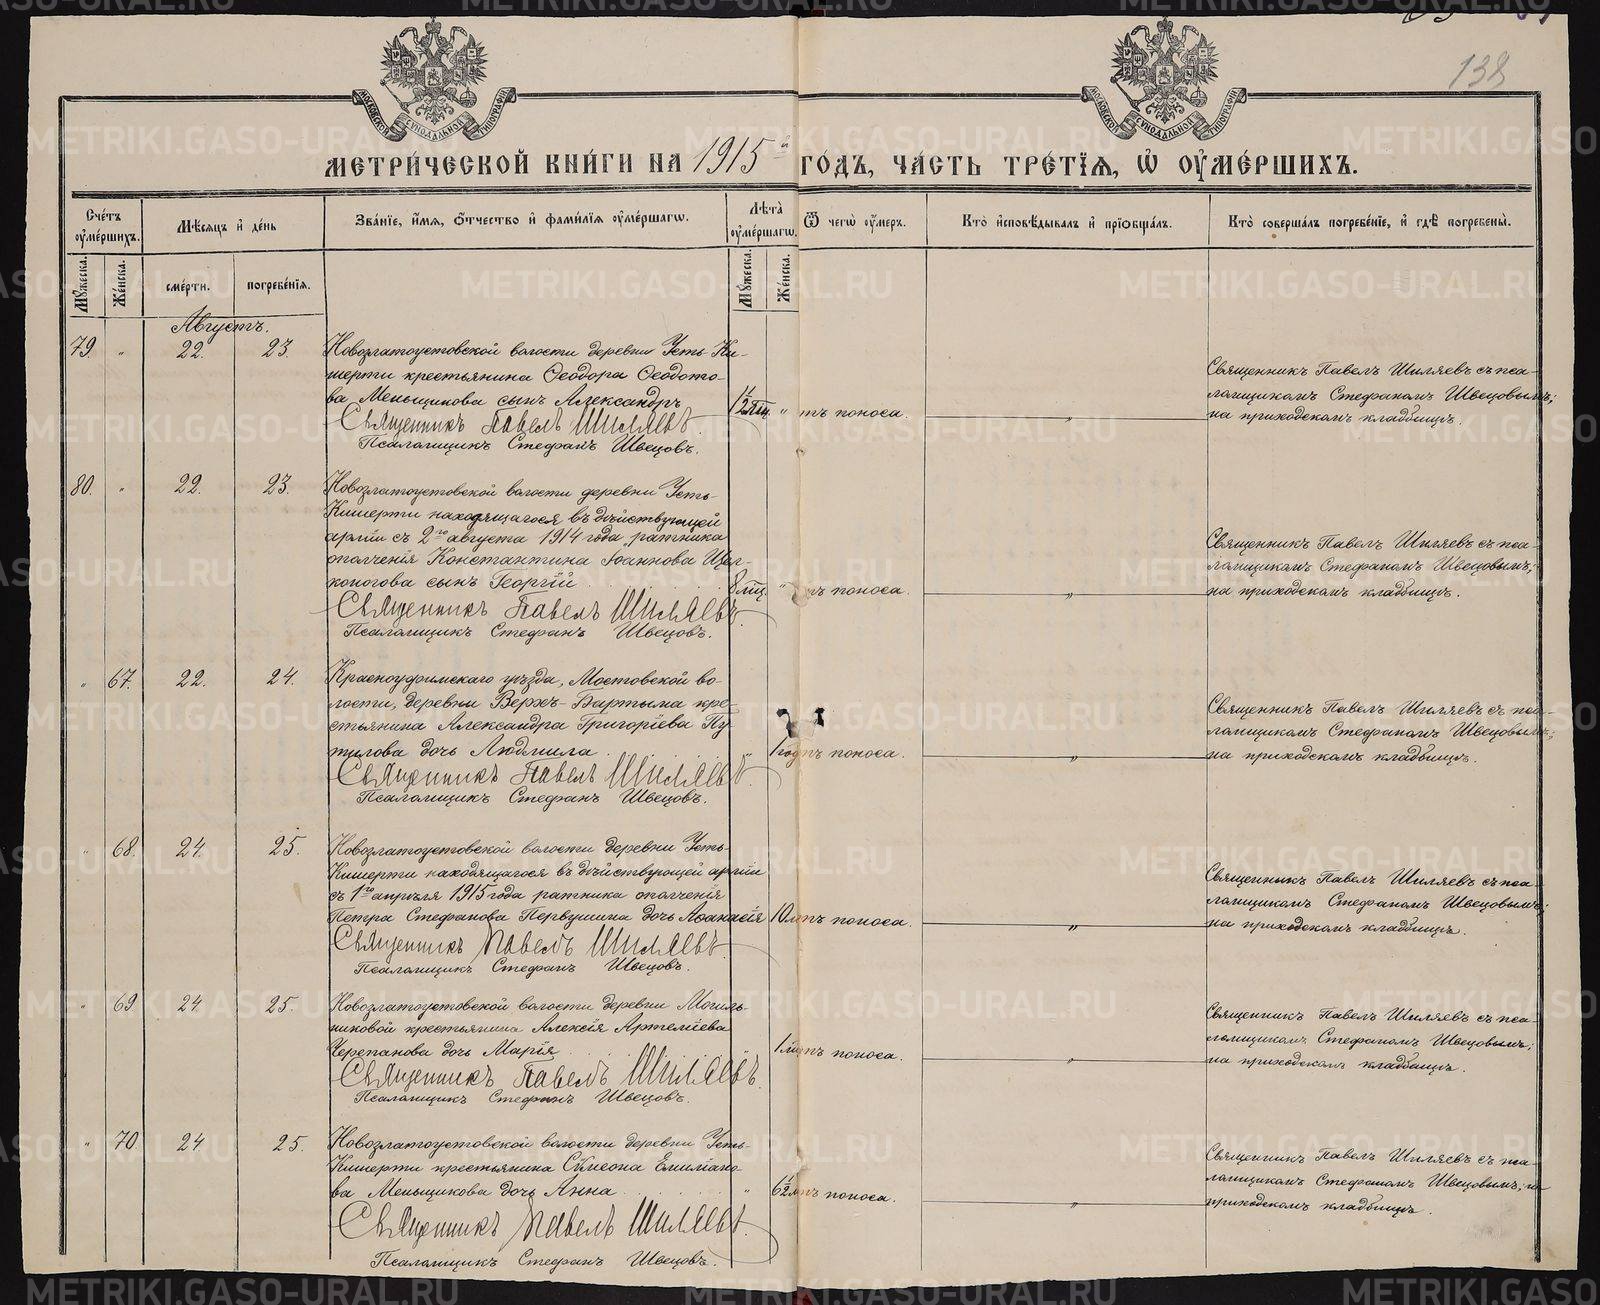 138
МОСКОВСКОЙ СѴНОДАЛЬНОЙ ТИПОГРАФІИ
МОСКОВСКОЙ СѴНОДАЛЬНОЙ ТИПОГРАФІИ
МЕТРИ́ЧЕСКОЙ КНИ́ГИ НА 1915й ГО́ДЪ, ЧА́СТЬ ТРЕ́ТІѦ, Ѡ҆ ОУ҆МЕ́РШИХЪ.
Сче́тъ оу҆ме́ршихъ.
Мѣ́сѧцъ и҆ де́нь
Зва́нїе, и҆́мѧ, ѻ҆́тчество и҆ фами́лїѧ оу҆ме́ршагѡ.
Лѣ́та оу҆ме́ршагѡ.
Ѿ чегѡ̀ оу҆́меръ.
Кто̀ и҆сповѣ́дывалъ и҆ прїѡбща́лъ.
Кто̀ соверша́лъ погребе́нїе, и҆ гдѣ̀ погребены̀.
Мꙋ́жеска.
Же́нска.
сме́рти.
погребе́нїѧ.
Мꙋ́жеска.
Же́нска.
Августъ.
79. " 22. 23. Новозлатоустовской волости деревни Усть-Ки-
шерти крестьянина Ѳеодора Ѳеодото-
ва Меньщикова сынъ Александръ 1½ мц. " тъ поноса. "
Священникъ Павелъ Шиляевъ.
Псаломщикъ Стефанъ Швецовъ.
Священникъ Павелъ Шиляевъ съ пса-
ломщикомъ Стефаномъ Швецовымъ;
на приходскомъ кладбищѣ.
80. " 22. 23. Новозлатоустовской волости деревни Усть-
Кишерти находящагося въ дѣйствующей
арміи съ 2го августа 1914 года ратника
ополченія Константина Іоаннова Щел-
коногова сынъ Георгій 8 мц. " тъ поноса. "
Священникъ Павелъ Шиляевъ.
Псаломщикъ Стефанъ Швецовъ.
Священникъ Павелъ Шиляевъ съ пса-
ломщикомъ Стефаномъ Швецовымъ;
на приходскомъ кладбищѣ.
" 67. 22. 24. Красноуфимскаго уѣзда, Мостовской во-
лости, деревни Верхъ-Бартыма кре-
стьянина Александра Григоріева Пу-
тилова дочь Людмила " 1 год тъ поноса. "
Священникъ Павелъ Шиляевъ.
Псаломщикъ Стефанъ Швецовъ.
Священникъ Павелъ Шиляевъ съ пса-
ломщикомъ Стефаномъ Швецовымъ;
на приходскомъ кладбищѣ.
" 68. 24. 25. Новозлатоустовской волости деревни Усть-
Кишерти находящагося въ дѣйствующей арміи
съ 1го апрѣля 1915 года ратника ополченія
Петра Стефанова Первушина дочь Аѳанасія 10 м тъ поноса. "
Священникъ Павелъ Шиляевъ
Псаломщикъ Стефанъ Швецовъ.
Священникъ Павелъ Шиляевъ съ пса-
ломщикомъ Стефаномъ Швецовымъ;
на приходскомъ кладбищѣ.
" 69 24. 25. Новозлатоустовской волости деревни Могиль-
никовой крестьянина Алексія Артеміева
Черепанова дочь Марія 1 м тъ поноса. "
Священникъ Павелъ Шиляевъ.
Псаломщикъ Стефанъ Швецовъ.
Священникъ Павелъ Шиляевъ съ пса-
ломщикомъ Стефаномъ Швецовымъ;
на приходскомъ кладбищѣ.
" 70. 24 25. Новозлатоустовской волости деревни Усть-
Кишерти крестьянина Сѵмеона Емиліано-
ва Меньщикова дочь Анна " 6½ м тъ поноса. "
Священникъ Павелъ Шиляевъ.
Псаломщикъ Стефанъ Швецовъ.
Священникъ Павелъ Шиляевъ съ пса-
ломщикомъ Стефаномъ Швецовымъ; на
приходскомъ кладбищѣ.
METRIKI.GASO-URAL.RU